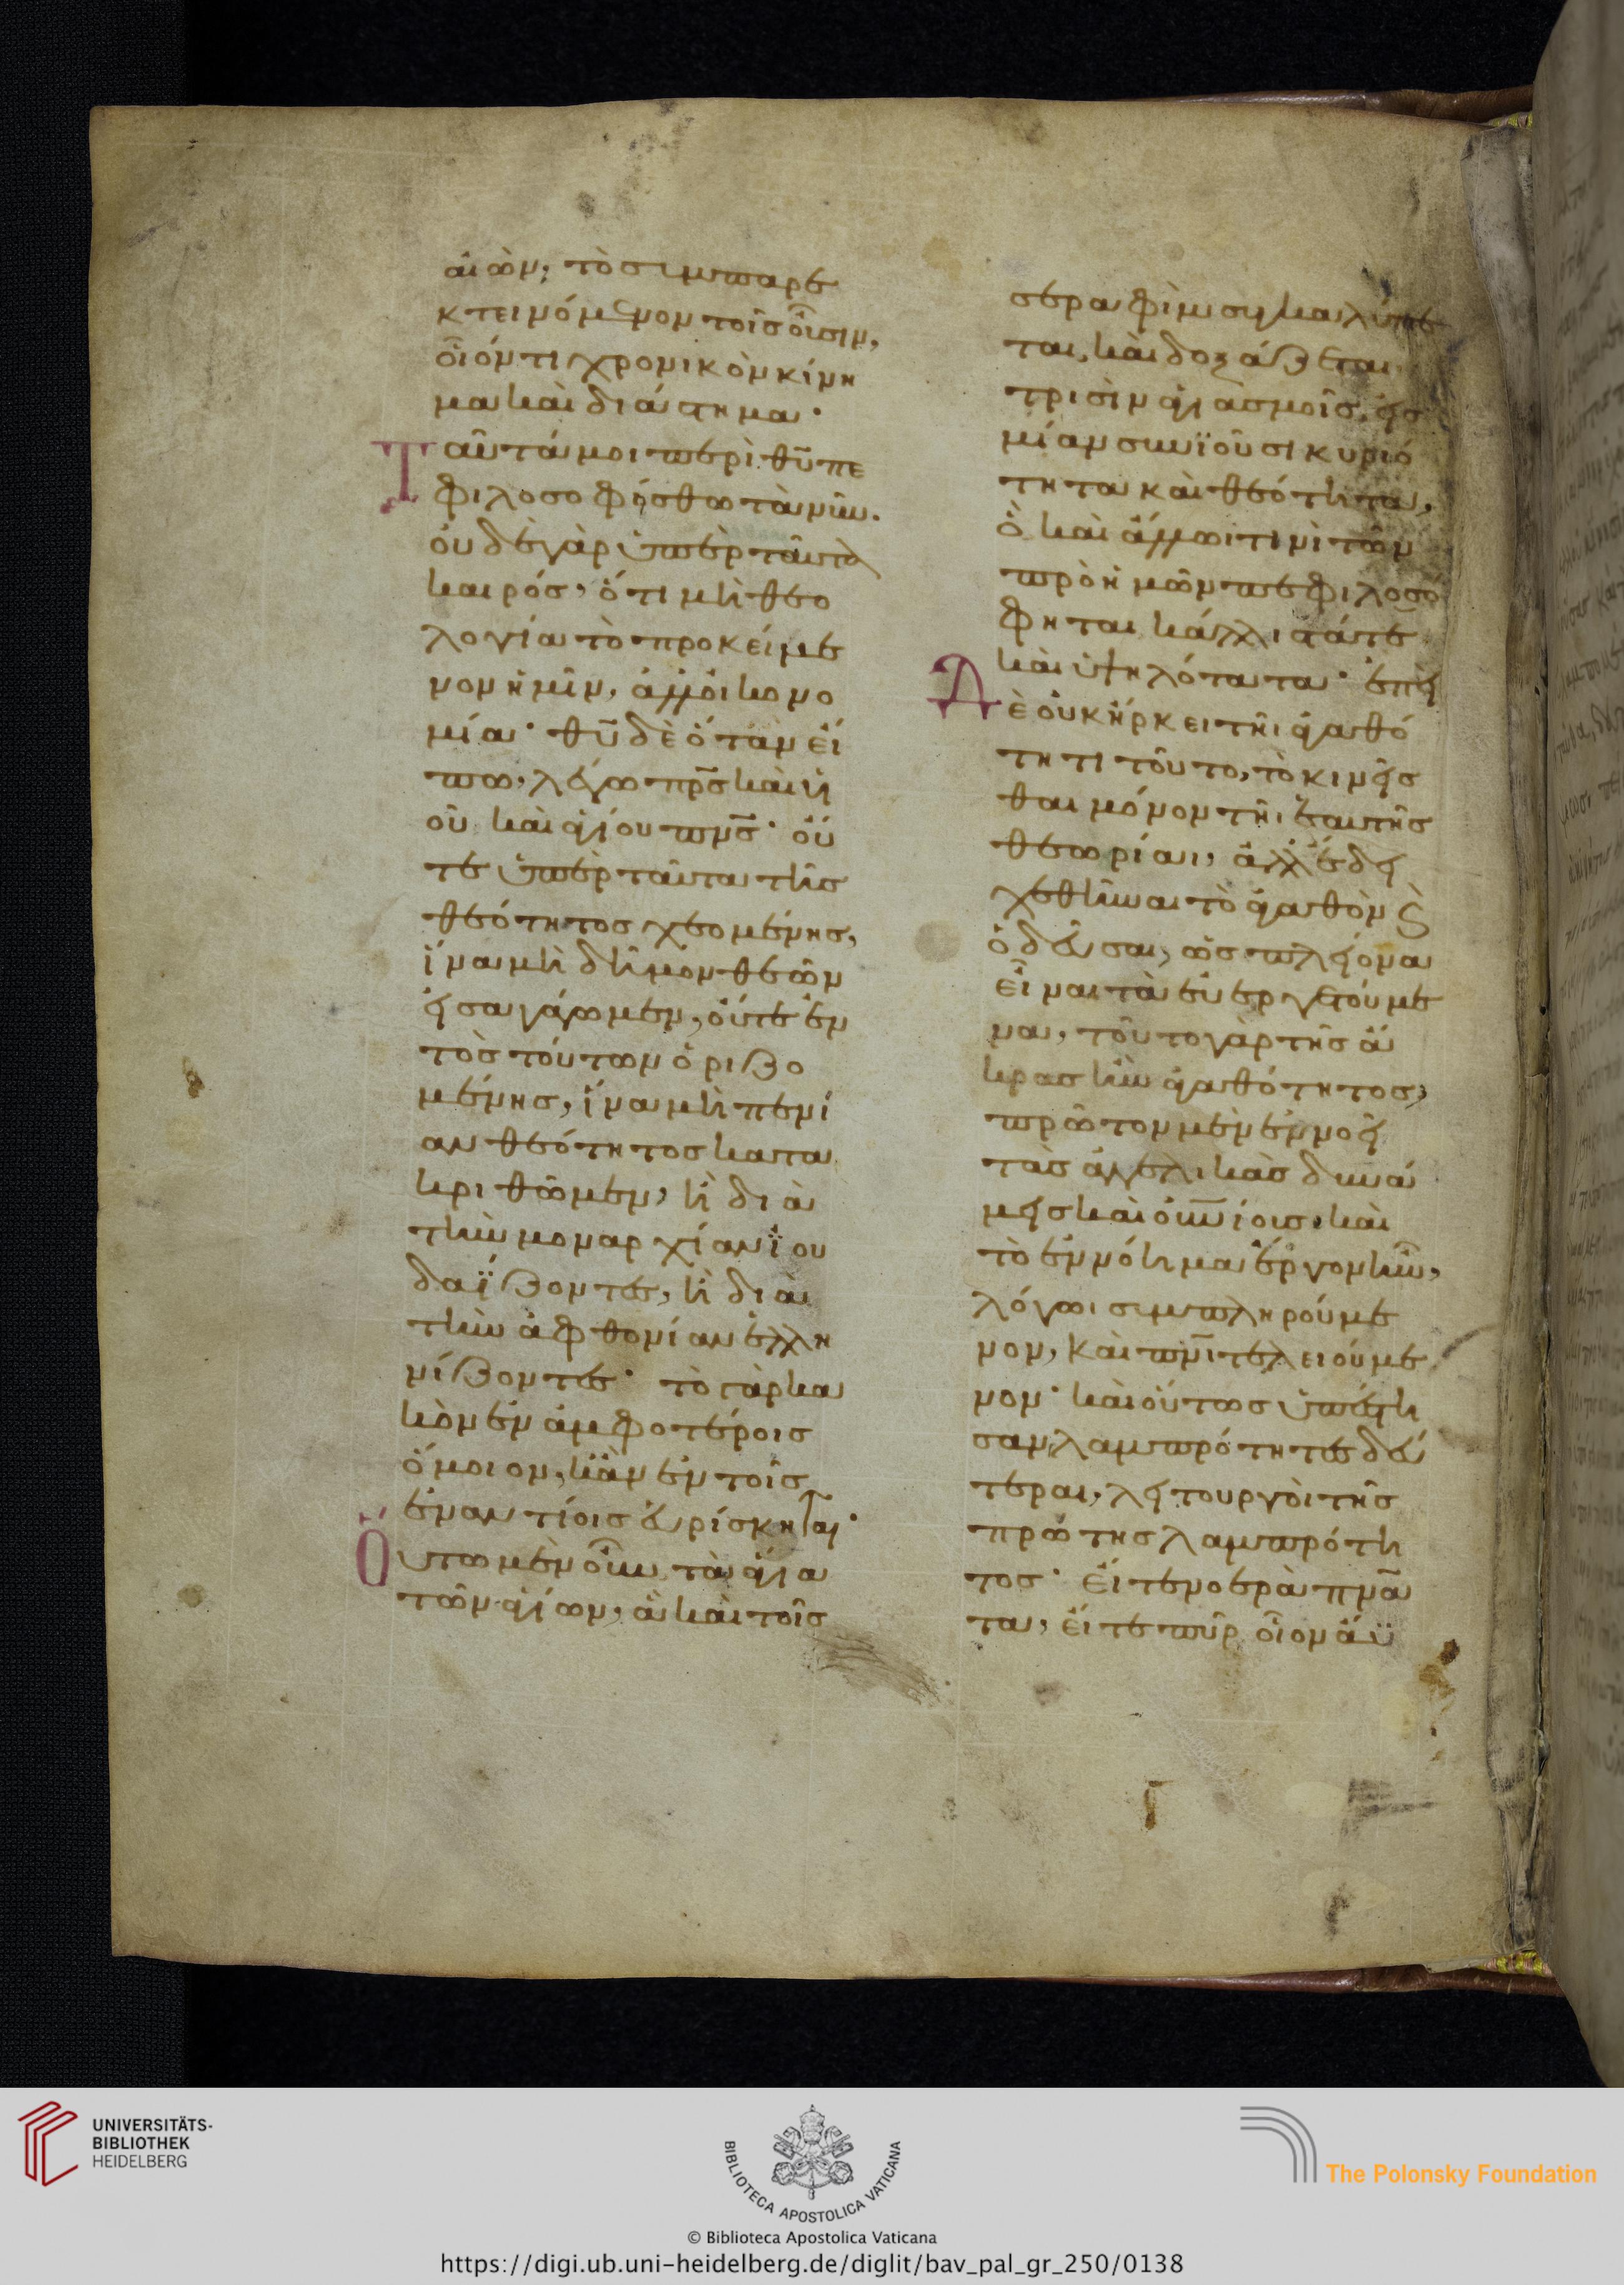 αἰὼν, τὸ συμπαρε
κτεινόμενον τοῖς οὖσιν,
οἷόν τι χρονικὸν κίνη
μα καὶ διάστημα·
Ταῦτά μοι περὶ θ̅υ̅ πε
φιλοσοφήσθω τὰ νῦν.
οὐδὲ γὰρ ὑπὲρ ταῦτα
καιρός, ὅτι μὴ θεο
λογία τὸ προκείμε
νον ἡμῖν, ἀλλ' οἰκονο
μία· θ̅υ̅ δὲ ὅταν εἴ
πω, λέγω π̅ρ̅ς̅ καὶ ὑι
οῦ καὶ ἁγίου π̅ν̅ς̅· οὔ
τε ὑπὲρ ταῦτα τῆς
θεότητος χεομένης,
ἵνα μὴ δῆμον θεῶν
εἰσαγάγωμεν, οὔτε ἐν
τὸς τούτων ὁριζο
μένης, ἵνα μὴ πενί
αν θεότητος κατα
κριθῶμεν, ἢ διὰ
τὴν μοναρχίαν ἰου
δαΐζοντες, ἢ διὰ
τὴν ἀφθονίαν ἑλλη
νίζοντες· τὸ γὰρ κα
κὸν ἐν ἀμφοτέροις
ὅμοιον, κἂν ἐν τοῖς
ἐναντίοις εὑρίσκηται·
Οὕτω μὲν οὖν τὰ ἅγια
τῶν ἁγίων, ἃ καὶ τοῖς
σεραφὶμ συγκαλύπτε
ται, καὶ δοξάζεται
τρισὶν ἁγιασμοῖς, εἰς
μίαν συνϊοῦσι κυριό
τητα καὶ θεότητα,
ὃ καὶ ἄλλω τινὶ τῶν
πρὸ ἡμῶν πεφιλοσό
φηται κάλλιστά τε
καὶ ὑψηλότατα· ἐπεὶ
Δὲ οὐκ ἤρκει τῆι ἀγαθό
τητι τοῦτο, τὸ κινεῖσ
θαι μόνον τῆι ἑαυτῆς
θεωρίαι, ἀλλ' ἔδει
χεθῆναι τὸ ἀγαθὸν καὶ
ὁδεῦσαι, ὡς πλείονα
εἶναι τὰ εὐεργετούμε
να, τοῦτο γὰρ τῆς ἄ
κρας ἦν ἀγαθότητος,
πρῶτον μὲν ἐννοεῖ
τὰς ἀγγελικὰς δυνά
μεις καὶ ο̅υ̅νίους. καὶ
τὸ ἐννόημα ἔργον ἦν,
λόγωι συμπληρούμε
νον, καὶ π̅ν̅ι̅ τελειούμε
νον· καὶ οὕτως ὑπέστη
σαν λαμπρότητες δεύ
τεραι, λειτουργοὶ τῆς
πρώτης λαμπρότη
τος· εἴτε νοερὰ π̅ν̅α̅
τα, εἴτε πῦρ οἷον ἄϋ
UNIVERSITÄTS-
BIBLIOTHEK
HEIDELBERG
BIBLIOTECA APOSTOLICA VATICANA
The Polonsky Foundation
© Biblioteca Apostolica Vaticana
https://digi.ub.uni-heidelberg.de/diglit/bav_pal_gr_250/0138